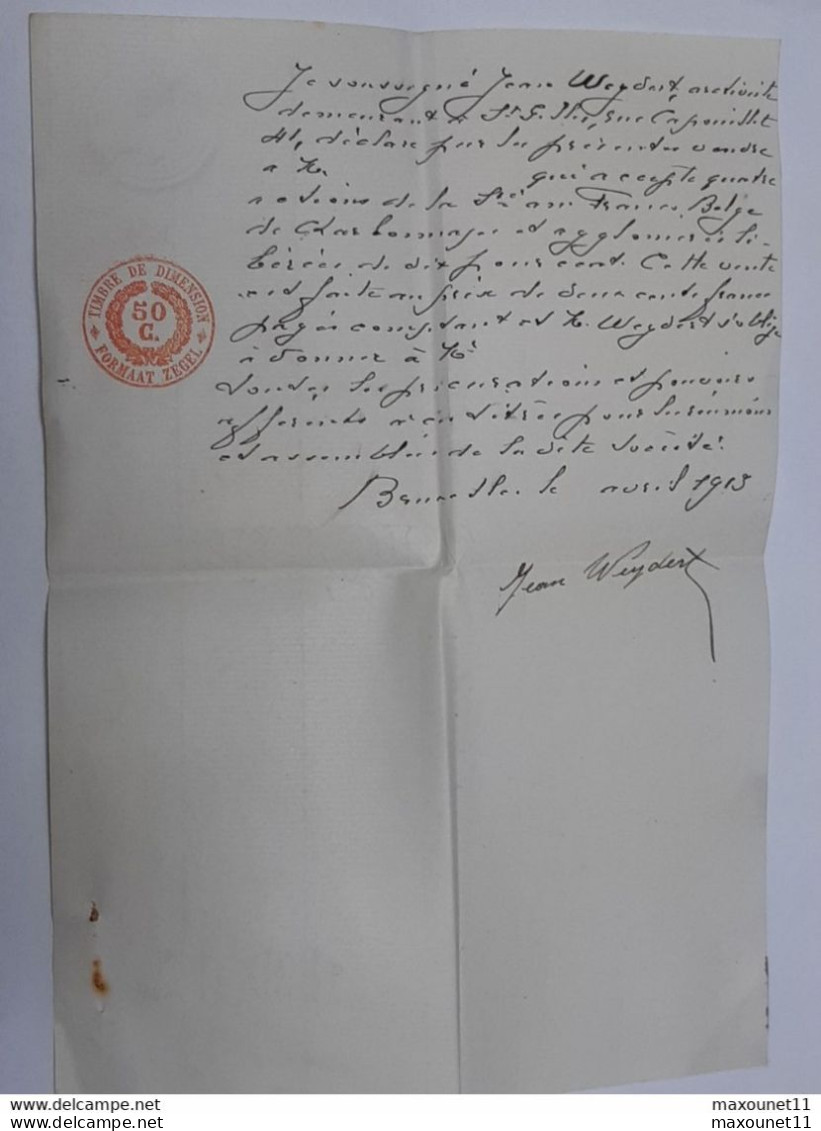 Je soussigné Jean Weydert, architecte
demeurant à St Gilles, rue Capouillet
41, déclare par les présentes vendre
à M. qui accepte quatre
actions de la Sté an Franco Belge
de Charbonnages et agglomérés li-
bérées de dix pour cent. Cette vente
est faite au prix de deux cents francs
payés comptant et M. Weydert s'oblige
à donner à Mr
toutes les procurations et pouvoirs
afférents à ces titres pour les réunions
et assemblées de la dite société.
Bruxelles le avril 1913
Jean Weydert
TIMBRE DE DIMENSION
50
C.
FORMAAT ZEGEL
maxounet11
maxounet11
DELCAMPE.NET
DELCAMPE.NET
maxounet11
maxounet11